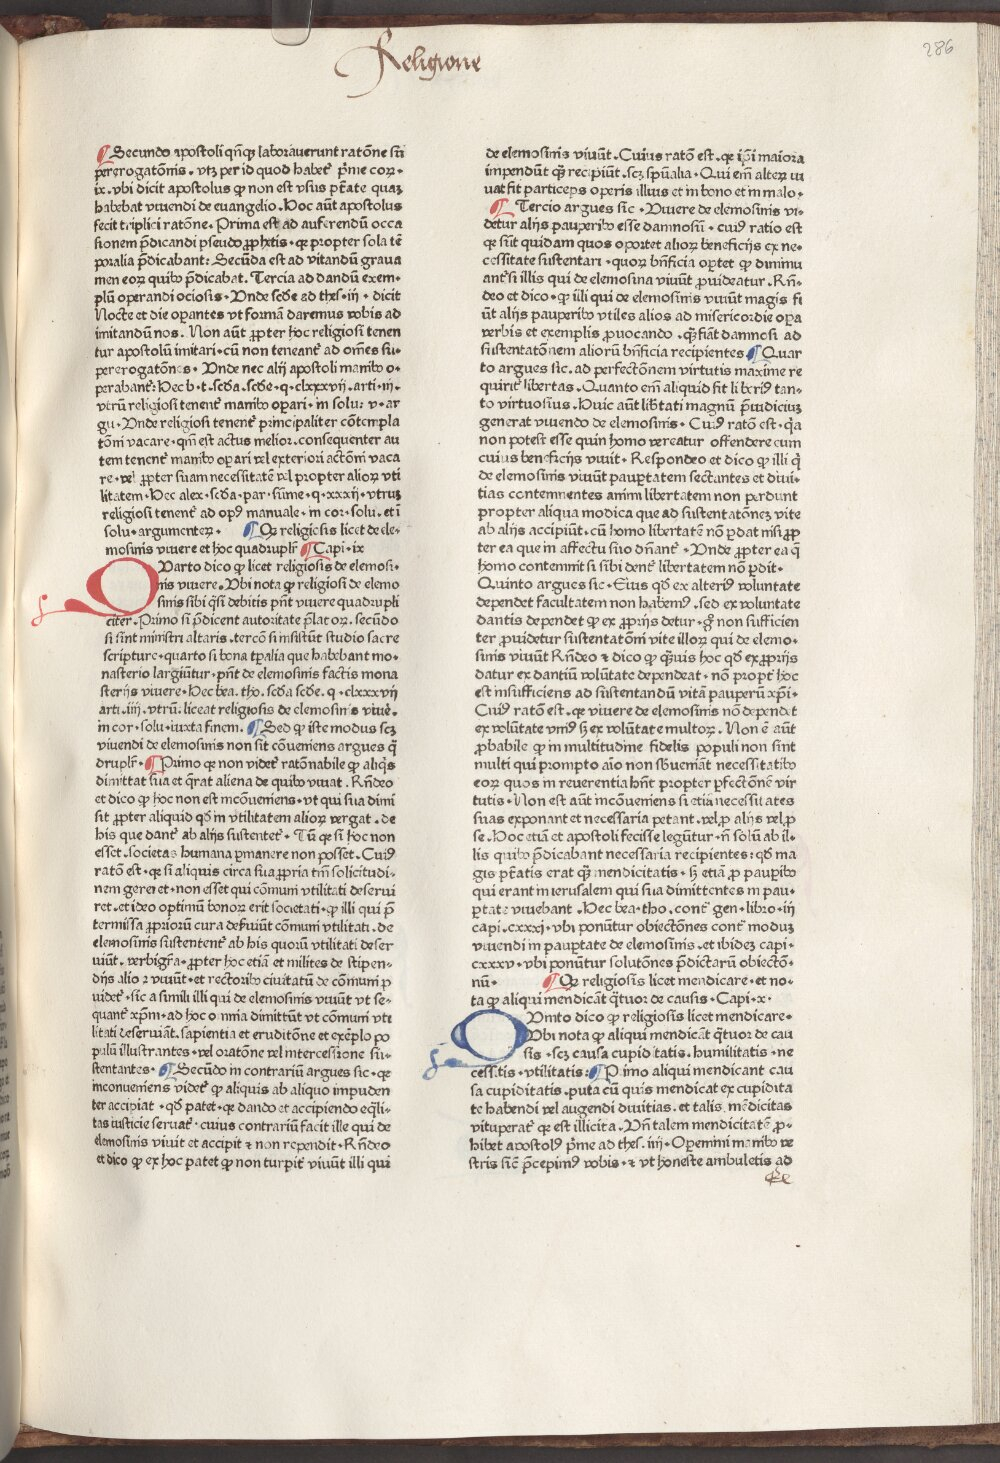 Religione
286
Secundo apostoli qñqꝫ laborauerunt ratõne sũ
pererogatõnis . vtꝫ per id quod habet᷑ p̃me cor .
ix . vbi dicit apostolus ꝙ non est vsus ptãte quaꝫ
habebat viuendi de euangelio . Hoc aũt apostolus
fecit triplici ratõne . Prima est ad auferendũ occa
sionem p̃dicandi pseudo ꝓphetis . qꝛ propter sola tẽ
poralia p̃dicabant : Secũda est ad vitandũ graua
men eorꝝ quibꝰ p̃dicabat . Tercia ad dandũ exem-
plũ operandi ociosis . Vnde scðe ad thes . iij . dicit
Nocte et die oꝑantes vt formã daremus vobis ad
imitandũ nos . Non aũt ꝓpter hoc religiosi tenen
tur apostolũ imitari . cũ non teneant᷑ ad om̃es su-
pererogatões . Vnde nec alij apostoli manibꝰ o-
perabant᷑ : Hec b . t . scða . scðe . q . clxxxvij . arti . iij .
vtrũ religiosi tenent᷑ manibꝰ oꝑari . in solu . v . ar
gu . Vnde religiosi tenent᷑ principaliter cõtempla
tõni vacare . qm̃ est actus melior . consequenter au
tem tenent᷑ manibꝰ oꝑari vel exteriori actõni vaca
re . vel ꝓpter suam necessitatẽ vel propter aliorꝝ vti
litatem . Hec alex . scða . par . sũme . q . xxxij . vtruꝫ
religiosi tenent᷑ ad opꝰ manuale . in cor . solu . et ĩ
solu . argumentorꝝ . Qꝛ religiosis licet de ele-
mosinis viuere et hoc quadruplr̃ Capi . ix
Qvarto dico ꝙ licet religiosis de elemosi-
nis viuere . Vbi nota ꝙ religiosi de elemo
sinis sibi q̃si debitis pñt viuere quadrupli
citer . Primo si p̃dicent autoritate p̃latorꝝ . secũdo
si sint ministri altaris . tercõ si insistũt studio sacre
scripture . quarto si bona tꝑalia que habebant mo-
nasterio largiũtur . pñt de elemosinis factis mona
sterijs viuere . Hec bea . tho . scða scðe . q . clxxxvij
arti . iiij . vtrũ liceat religiosis de elemosinis viuẽ .
in cor . solu . iuxta finem . Sed ꝙ iste modus scꝫ
viuendi de elemosinis non sit cõueniens argues q̃
druplr̃ . Primo qꝛ non videt᷑ ratõnabile ꝙ aliq̃s
dimittat sua et q̃rat aliena de quibꝰ viuat . Rñdeo
et dico ꝙ hoc non est incõueniens . vt qui sua dimi
sit ꝓpter aliquid qđ in vtilitatem aliorꝝ vergat . de
his que dant᷑ ab alijs sustentet᷑ . Tũ qꝛ si hoc non
esset . societas humana ꝑmanere non posset . Cuiꝰ
ratõ est . qꝛ si aliquis circa sua ꝓpria tm̃ solicitudi-
nem gereret . non esset qui cõmuni vtilitati deserui
ret . et ideo optimũ bonorꝝ erit societati . ꝙ illi qui p̃
termissa ꝓpriorũ cura deseruiũt cõmuni vtilitati . de
elemosinis sustentent᷑ ab his quorũ vtilitati deser
uiũt . verbigr̃a . ꝓpter hoc etiã et milites de stipen-
dijs alio ꝝ viuũt . et rectoribꝰ ciuitatũ de cõmuni ꝓ
videt᷑ . sic a simili illi qui de elemosinis viuũt vt se-
quant᷑ xpm̃ . ad hoc omnia dimittũt vt cõmuni vti
litati deseruiãt . sapientia et eruditõne et exẽplo po
pulũ illustrantes . vel oratõne vel intercessione su-
stentantes . Secũdo in contrariũ argues sic . qꝛ
inconueniens videt᷑ ꝙ aliquis ab aliquo impuden
ter accipiat . qđ patet . qꝛ dando et accipiendo eq̃li-
tas iusticie seruat᷑ . cuius contrariũ facit ille qui de
elemosinis viuit et accipit ⁊ non rependit . Rñdeo
et dico ꝙ ex hoc patet ꝙ non turpit᷑ viuũt illi qui
de elemosinis viuũt . Cuius ratõ est . qꝛ ip̃i maiora
impendũt q̃ꝫ recipiũt . scꝫ spũalia . Qui em̃ alterꝝ iu
uat fit particeps operis illius et in bono et in malo .
Tercio argues sic . Viuere de elemosinis vi-
detur alijs pauperibꝰ esse damnosũ . cuiꝰ ratio est
qꝛ sũt quidam quos oportet aliorꝝ beneficijs ex ne-
cessitate sustentari . quorꝝ bñficia oꝑtet ꝙ diminu
ant᷑ si illis qui de elemosina viuũt ꝓuideatur . Rñ-
deo et dico . ꝙ illi qui de elemosinis viuũt magis fi
ũt alijs pauperibꝰ vtiles alios ad misericordie oꝑa
verbis et exemplis ꝓuocando . q̃ꝫ fiãt damnosi ad
sustentatõnem aliorũ bñficia recipientes Quar
to argues sic . ad perfectõnem virtutis maxime re
quirit᷑ libertas . Quanto em̃ aliquid fit liberiꝰ tan-
to virtuosius . Huic aũt lib᷑tati magnũ p̃iudiciuꝫ
generat viuendo de elemosinis . Cuiꝰ ratõ est . q̃a
non potest esse quin homo vereatur offendere eum
cuius beneficijs viuit . Respondeo et dico ꝙ illi q̃
de elemosinis viuũt pauꝑtatem sectantes et diui-
tias contemnentes animi libertatem non perdunt
propter aliqua modica que ad sustentatõneꝫ vite
ab alijs accipiũt . cũ homo libertatẽ nõ ꝑdat nisi ꝓp
ter ea que in affectu suo dñant᷑ . Vnde ꝓpter ea q̃
homo contemnit si sibi dent᷑ libertatem nõ ꝑdit .
Quinto argues sic . Eius qđ ex alteriꝰ voluntate
dependet facultatem non habemꝰ . sed ex voluntate
dantis dependet ꝙ ex ꝓprijs detur . g̊ non sufficien
ter ꝓuidetur sustentatõni vite illorꝝ qui de elemo-
sinis viuũt Rñdeo ⁊ dico ꝙ q̃uis hoc qđ ex ꝓprijs
datur ex dantiũ volũtate dependeat . nõ propt᷑ hoc
est insufficiens ad sustentandũ vitã pauperũ xp̃i .
Cuiꝰ ratõ est . qꝛ viuere de elemosinis nõ dependet
ex volũtate vniꝰ sꝫ ex volũtate multorꝝ . Non ẽ aũt
ꝓbabile ꝙ in multitudine fidelis populi non sint
multi qui prompto aĩo non subueniãt necessitatibꝰ
eorꝝ quos in reuerentia hñt propter ꝑfectõnẽ vir
tutis . Non est aũt incõueniens si etiã necessitates
suas exponant et necessaria petant . vel ꝓ alijs vel ꝓ
se . Hoc etiã et apostoli fecisse legũtur . ñ solũ ab il-
lis quibꝰ p̃dicabant necessaria recipientes : qđ ma
gis ptãtis erat q̃ꝫ mendicitatis . sꝫ etiã ꝓ pauꝑibꝰ
qui erant in ierusalem qui sua dimittentes in pau-
ꝑtate viuebant . Hec bea . tho . cont᷑ gen . libro . iij
capi . cxxxj . vbi ponũtur obiectõnes cont᷑ moduꝫ
viuendi in pauꝑtate de elemosinis . et ibideꝫ capi .
cxxxv . vbi ponũtur solutõnes p̃dictarũ obiectõ-
nũ . Qꝛ religiosis licet mendicare . et no-
ta ꝙ aliqui mendicãt q̃tuor de causis . Capi . x .
Qvinto dico ꝙ religiosis licet mendicare .
Vbi nota ꝙ aliqui mendicãt q̃tuor de cau
sis . scꝫ causa cupiditatis . humilitatis . ne
cessitatis . vtilitatis : Primo aliqui mendicant cau
sa cupiditatis . puta cũ quis mendicat ex cupidita
te habendi vel augendi diuitias . et talis mẽdicitas
vituperat᷑ qꝛ est illicita . Vñ talem mendicitatẽ ꝓ-
hibet apostolꝰ p̃me ad thes . iiij . Operemini manibꝰ ve
stris sicẽ p̃cepimꝰ vobis . ⁊ vt honeste ambuletis ad